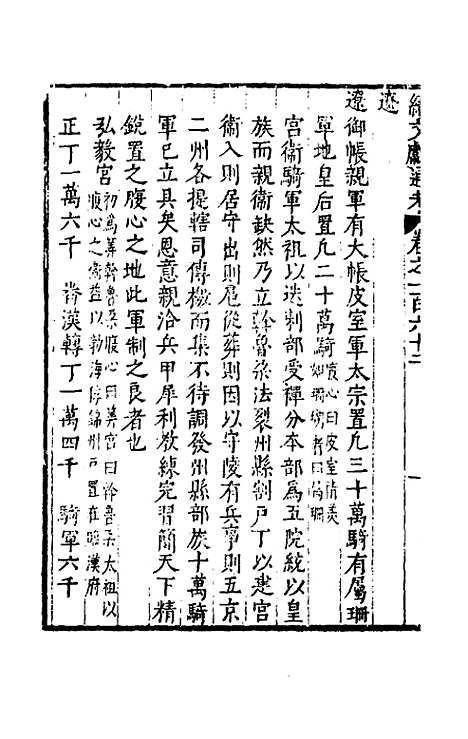 續文獻通考 卷之一百六十二
遼
遼御帳親軍有大帳皮室軍太宗置凡三十萬騎有屬珊
軍地皇后置凡二十萬騎
宮衛騎軍太祖以迭剌部受禪分本部爲五院統以皇
族而親衛缺然乃立斡魯朵法裂州縣割戶丁以建宮
衛入則居守出則扈從葬則因以守陵有兵事則五京
二州各提轄司傳檄而集不待調發州縣部族十萬騎
軍已立具矣恩意親洽兵甲犀利教練完習簡天下精
銳置之腹心之地此軍制之良者也
弘義宮
正丁一萬六千 蕃漢轉丁一萬四千 騎軍六千